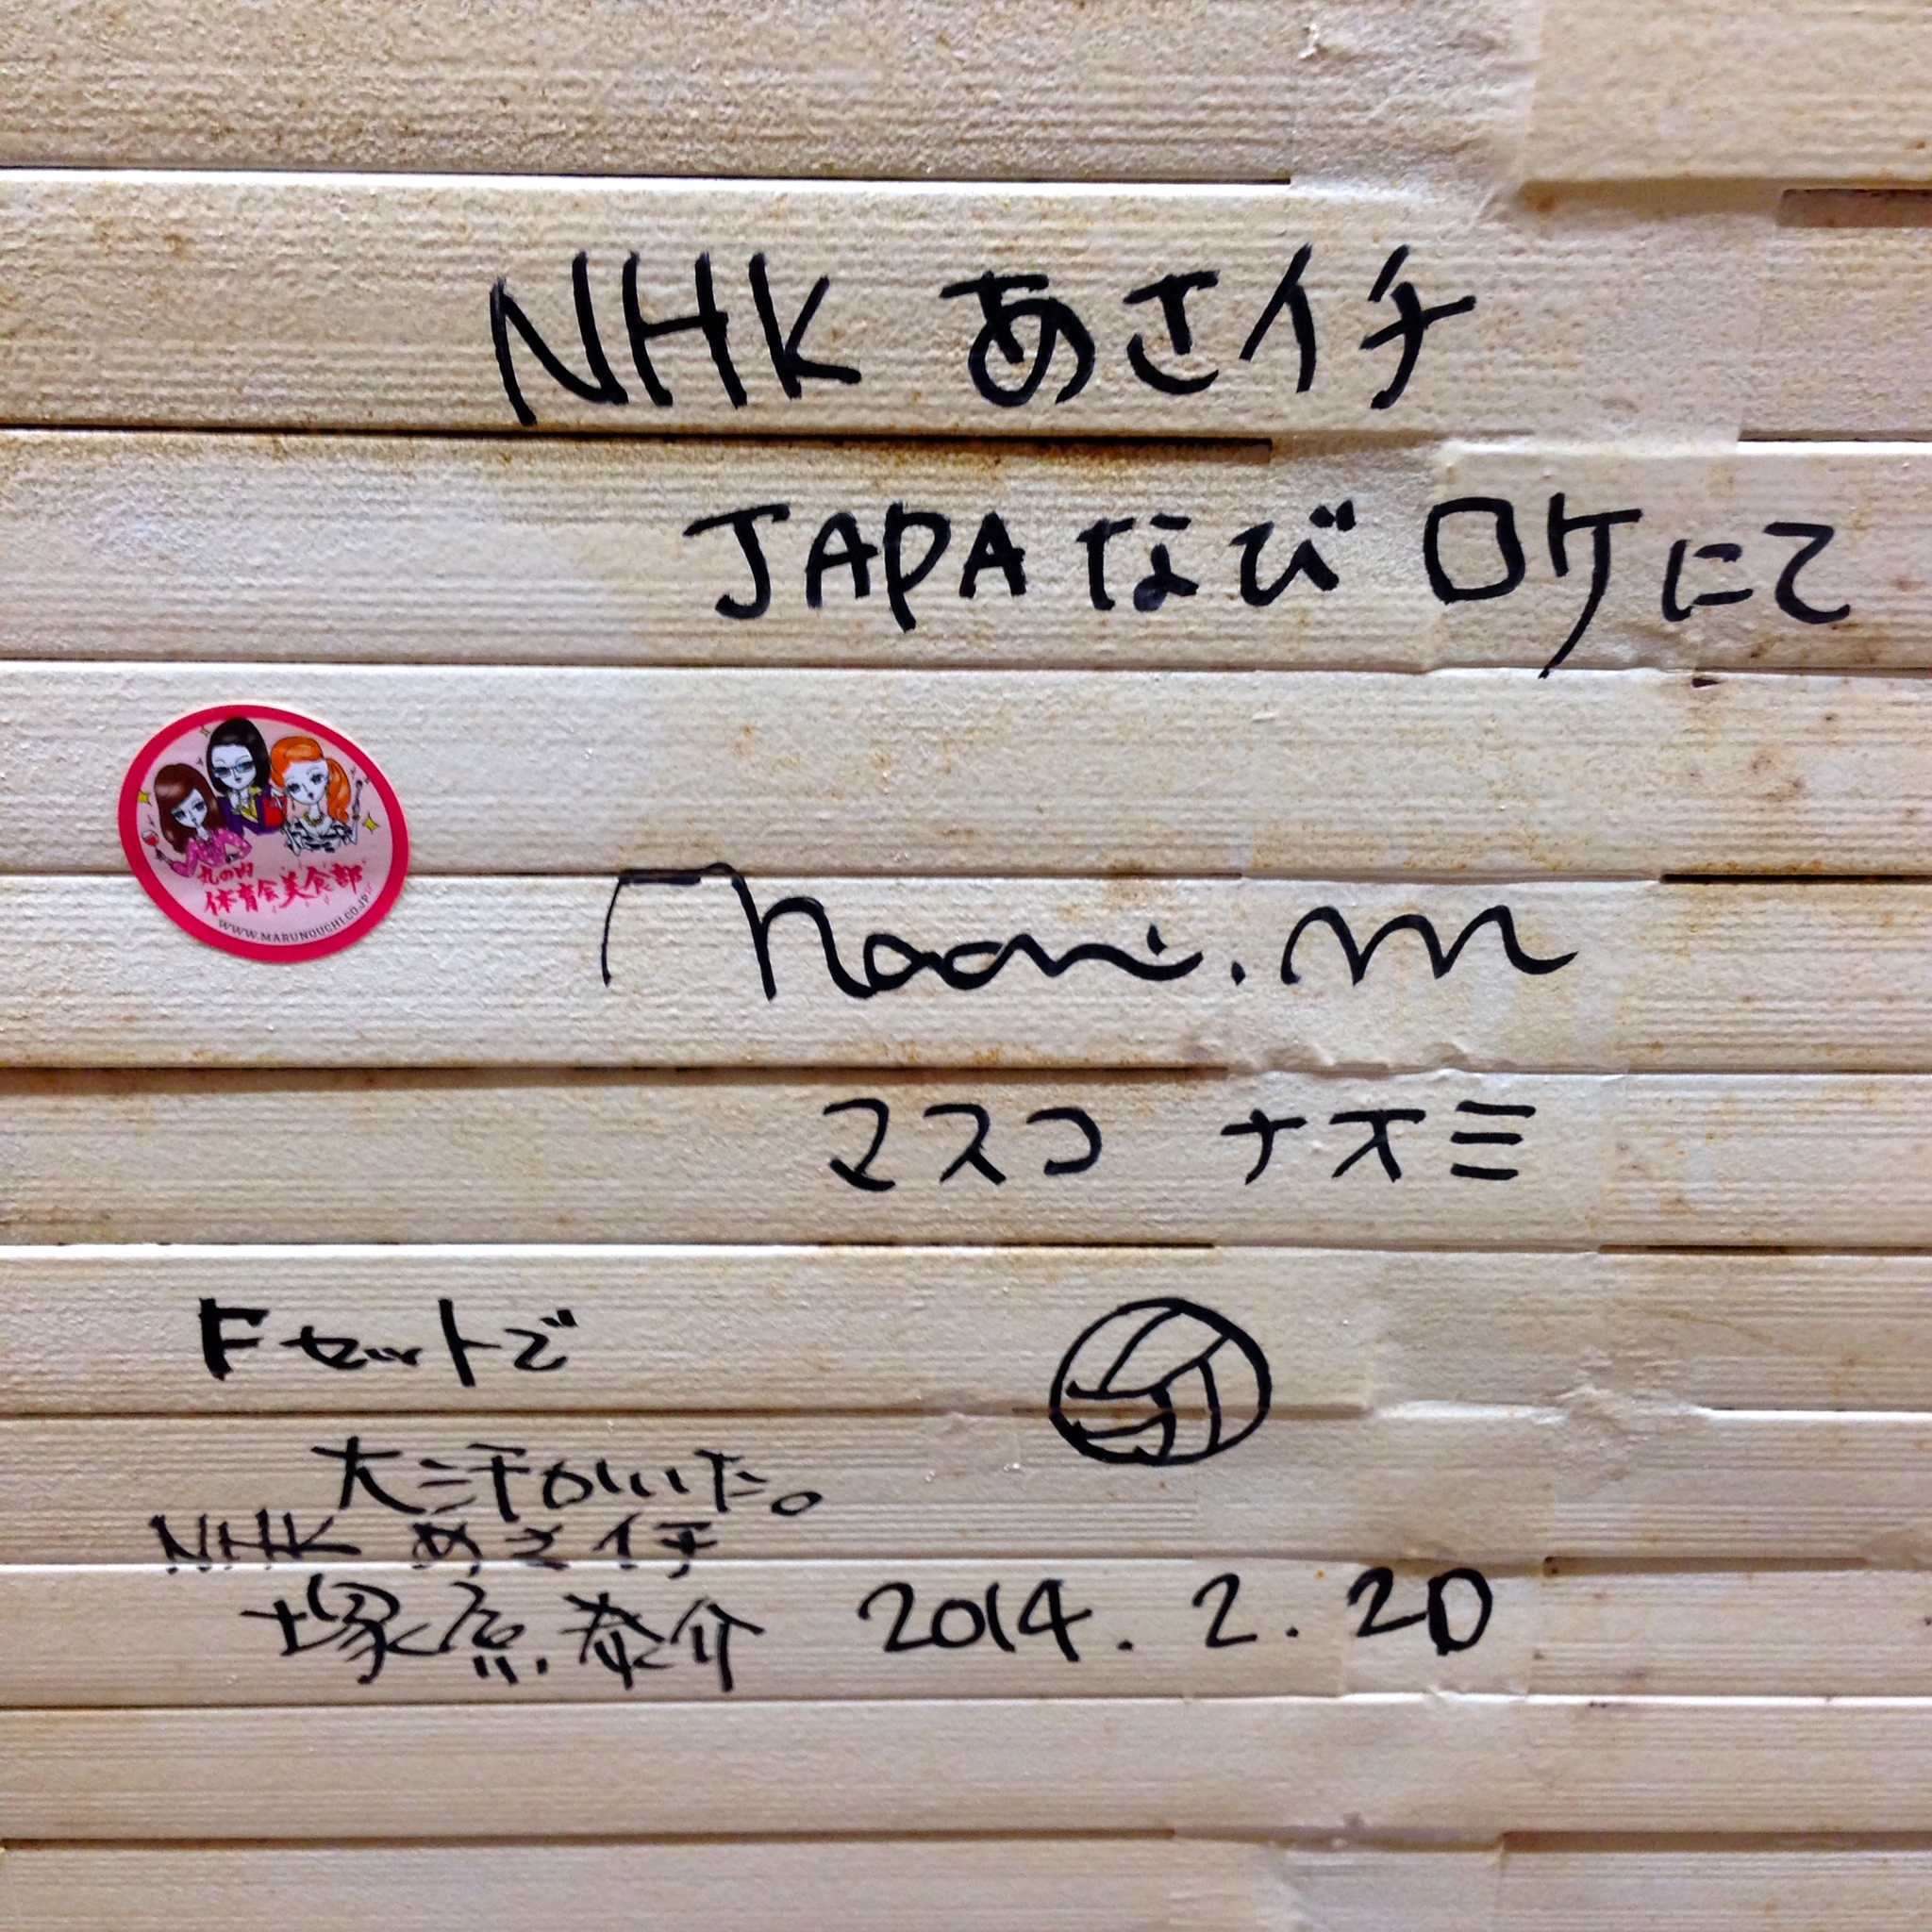 NHK あさイチ
JAPAなび ロケにて
丸の内
体育会美食部
WWW.MARUNOUCHI.CO.JP
Naomi.m
マスコ ナオミ
Fセットで
大汗かいた。
NHK あさイチ
塚原 泰介 2014.2.20